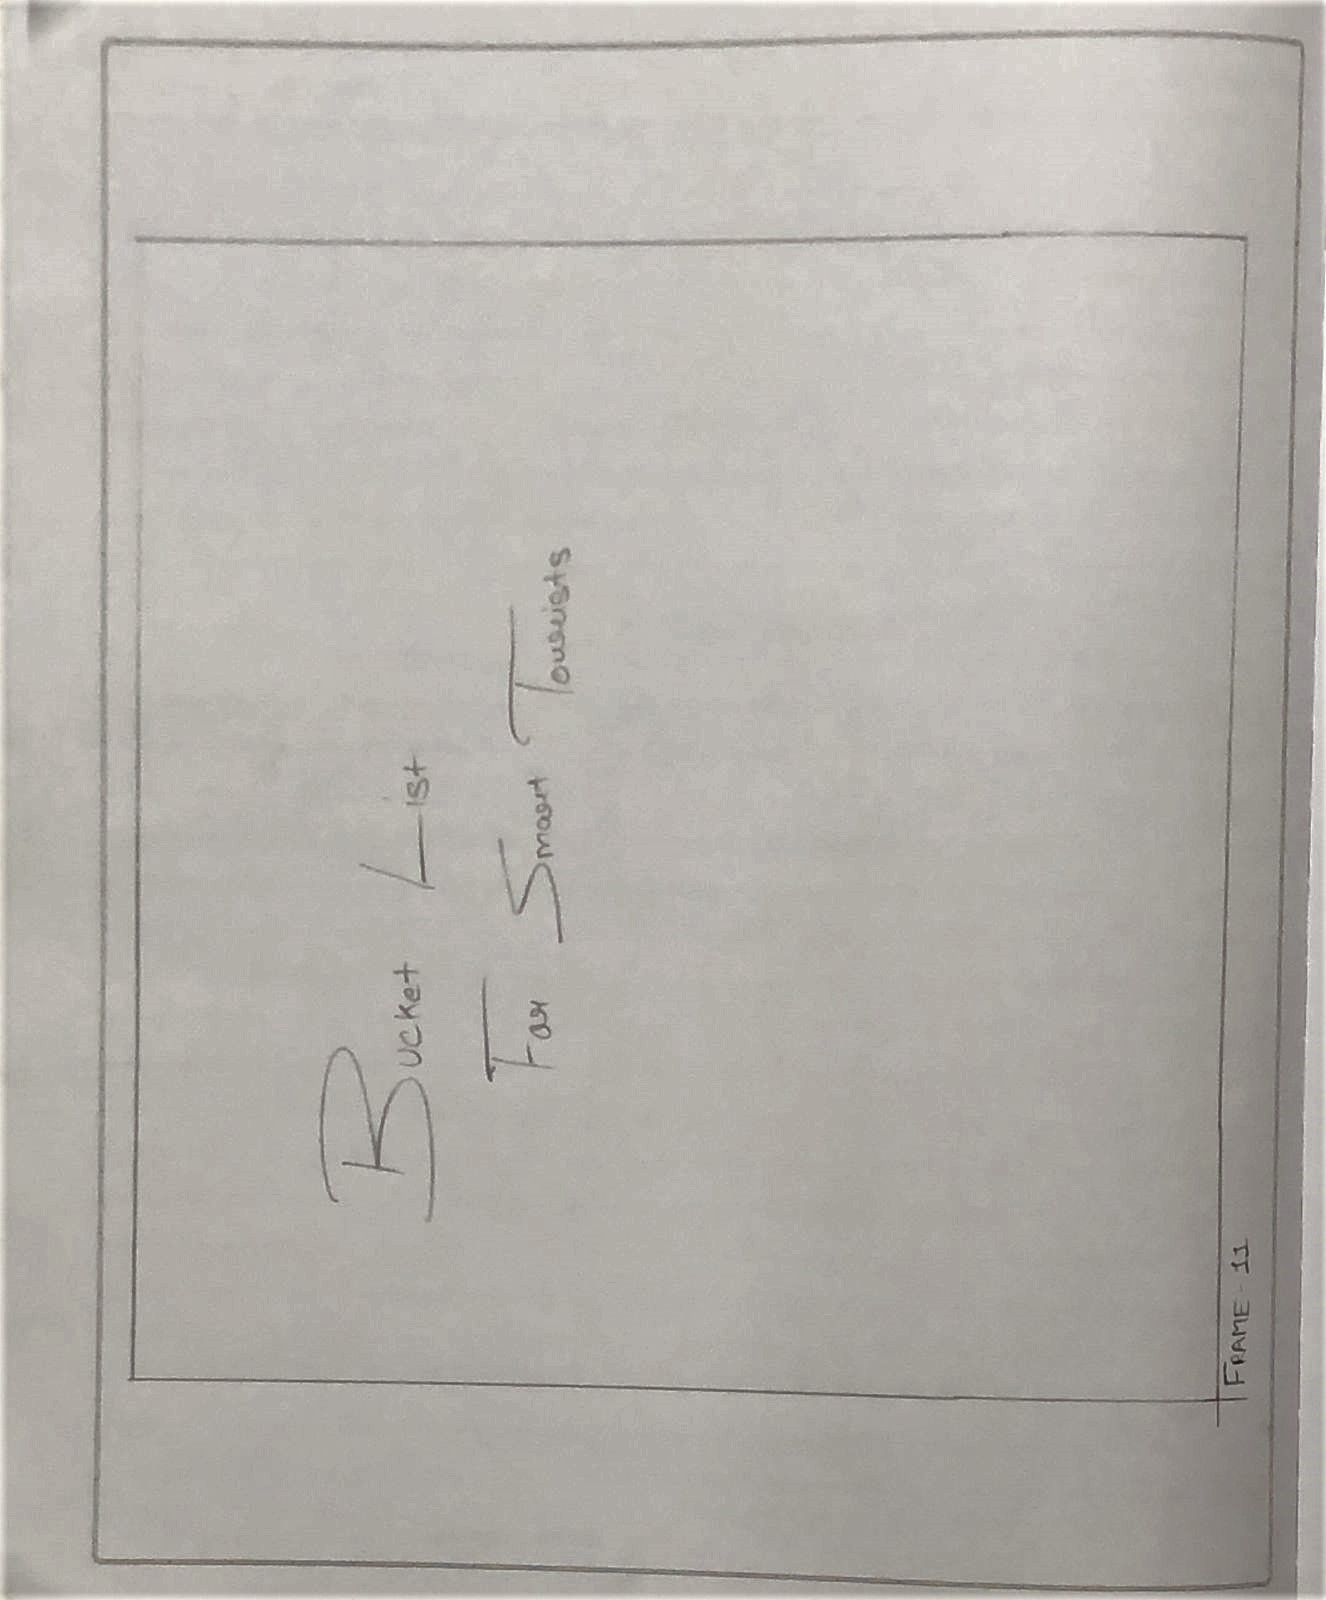 Bucket List
For Smart Tourists
FRAME - 11